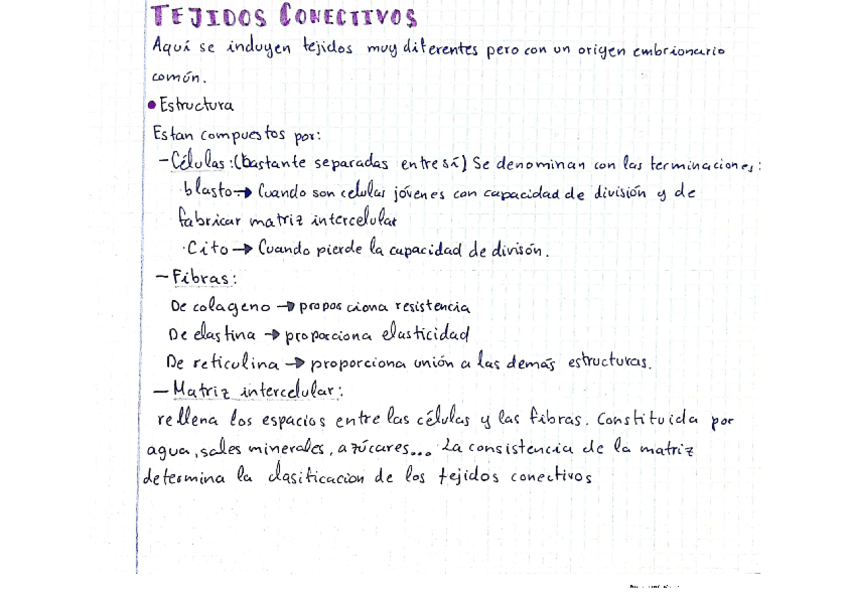 TEJIDOS CONECTIVOS
Aquí se incluyen tejidos muy diferentes pero con un origen embrionario
común.
• Estructura
Estan compuestos por:
- Células: (bastante separadas entre sí) Se denominan con las terminaciones:
· blasto → Cuando son celulas jóvenes con capacidad de división y de
fabricar matriz intercelular
· Cito → Cuando pierde la capacidad de divisón.
- Fibras:
De colageno → proporciona resistencia
De elastina → proporciona elasticidad
De reticulina → proporciona unión a las demás estructuras.
- Matriz intercelular:
rellena los espacios entre las células y las fibras. Constituida por
agua, sales minerales, azúcares... La consistencia de la matriz
determina la clasificacion de los tejidos conectivos